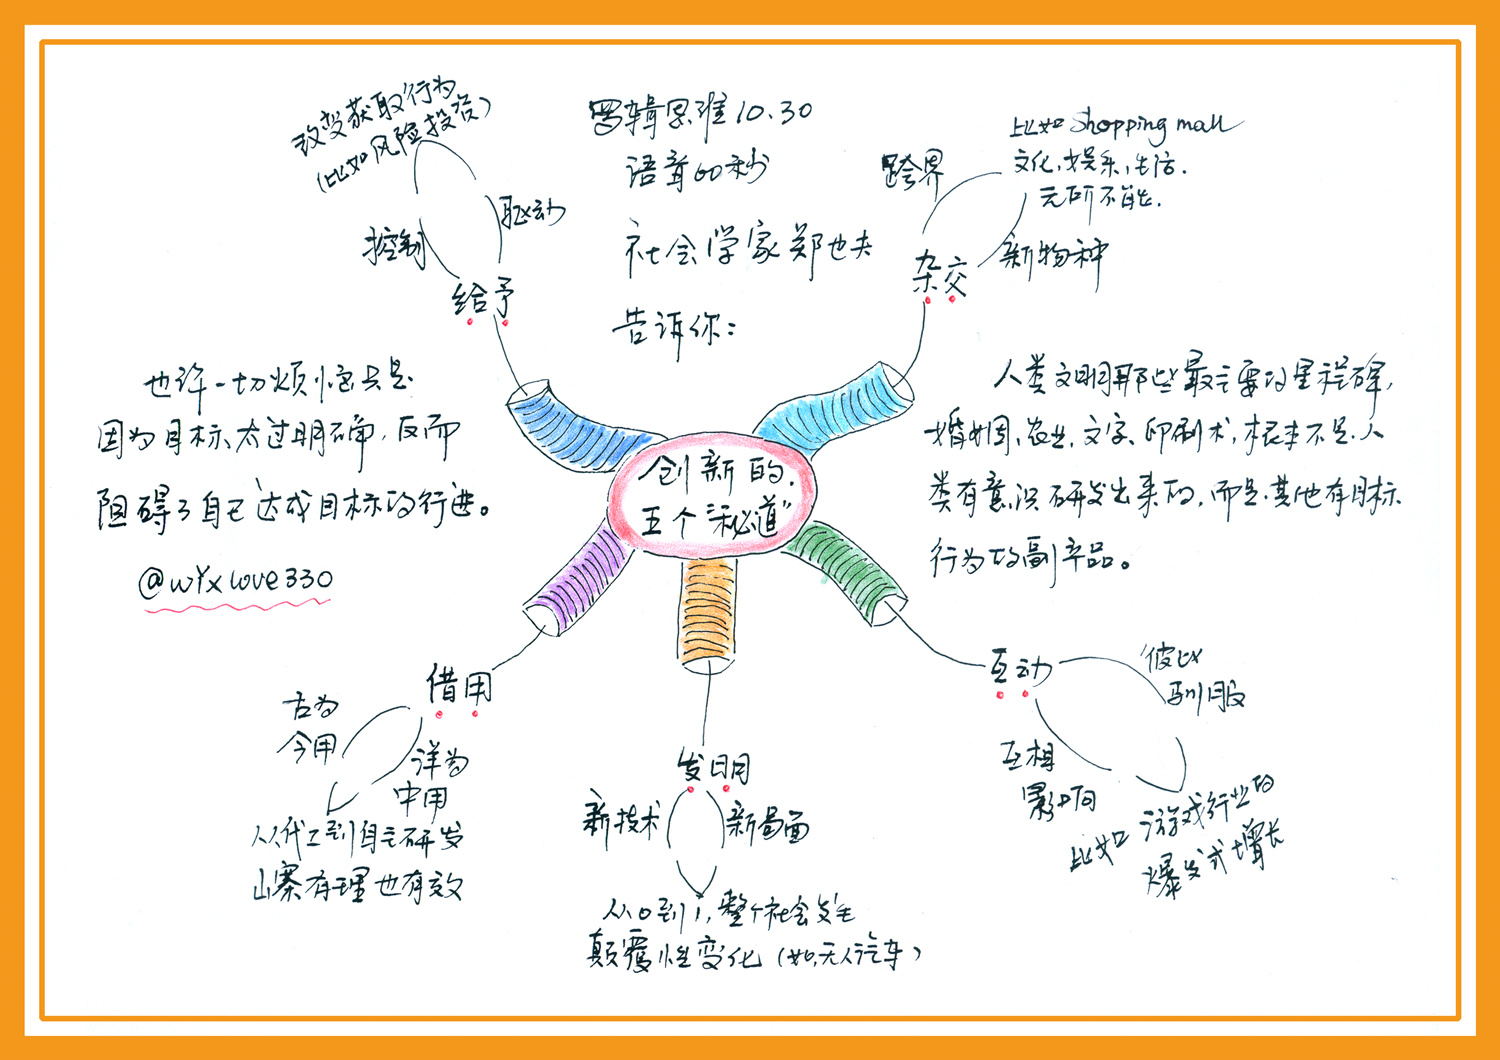 罗辑思维10.30
语音60秒
社会学家郑也夫
告诉你：
创新的
五个“秘道”
给予
控制
驱动
改变获取行为
（比如风险投资）
杂交
跨界
新物种
比如Shopping mall
文化，娱乐，生活．
无所不能．
人类文明那些最主要的里程碑，
婚姻、农业、文字、印刷术，根本不是人
类有意识研发出来的，而是其他有目标
行为的副产品。
互动
彼此
驯服
互相
影响
比如 游戏行业的
爆发式增长
发明
新技术
新局面
从0到1，整个社会发生
颠覆性变化（如，无人汽车）
借用
古为
今用
洋为
中用
从代工到自主研发
山寨有理也有效
也许一切烦恼只是
因为目标太过明确，反而
阻碍了自己达成目标的行进。
@wYxlove330